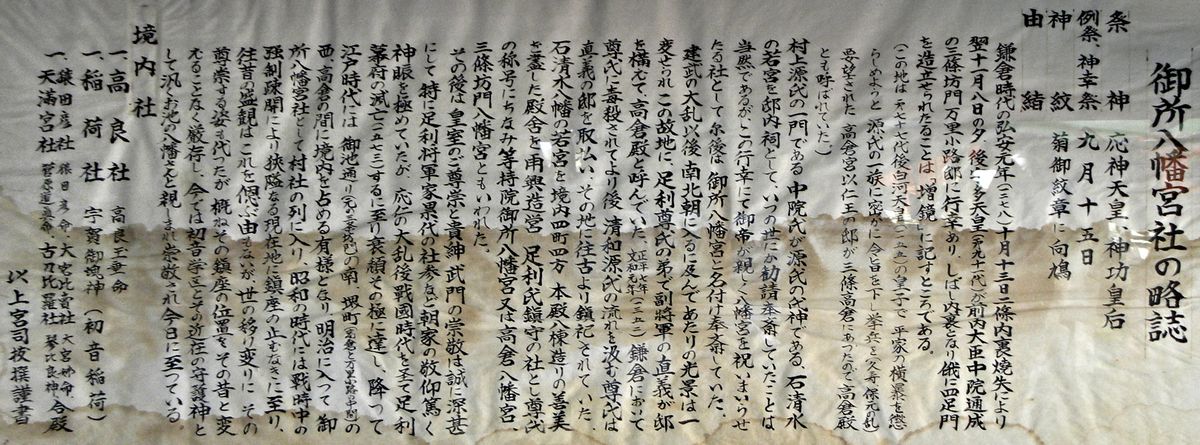 御所八幡宮社の略誌
祭神 応神天皇、神功皇后
例祭、神幸祭 九月十五日
神紋 菊御紋章に向鳩
由緒
鎌倉時代の弘安元年(一二七八)十月十三日二條内裏焼失により
翌十一月八日の夕 後宇多天皇(第九十一代)が前内大臣中院通成
の三條坊門万里小路邸に行幸あり、しばし内裏となり俄に四足門
を造立せられたることは「増鏡」に記すところである。
(この地は 第七十七代後白河天皇 の皇子で 平家の横暴を懲
らしめようと 源氏の一族に密かに令旨を下し挙兵
要望された 高倉宮以仁王の邸が三條高倉にあったので高倉殿
とも呼ばれていた)
村上源氏の一門である 中院氏が源氏の氏神である 石清水
の若宮を邸内祠として、いつの世にか勧請奉斎していたことは
当然であるがこの行幸にて御帝が親しく八幡宮を祝いまいらせ
たる社として 尓後は 御所八幡宮と名付け奉斎していた、
建武の大乱以後 南北朝に入るに及んであたりの光景は一
変せられこの故地に、足利尊氏の弟で副将軍の直義が邸
を構えて、高倉殿と呼んでいた、 鎌倉において
尊氏に毒殺されてより後、清和源氏の流れを汲む尊氏は
直義の邸を取払い、その地に往古より鎮祀されていた、
石清水八幡の若宮を境内四町四方 本殿八棟造りの善美
を盡した殿舎を再興造営 足利氏鎮守の社とし尊氏
の称号にちなみ等持院御所八幡宮又は高倉八幡宮、
三條坊門八幡宮ともいわれた。
その後は皇室のご尊崇と貴紳 武門の崇敬は誠に深甚
にして 特に足利将軍家累代の社参など朝家の敬仰篤く
神眼を極めていたが、応仁の大乱後戦國時代を至て足利
幕府の滅亡(一五七三)するに至り衰頽その極に達し、降って
江戸時代には 御池通り の南 堺町
西、高倉の間に境内を占める有様となり明治に入って 御
所八幡宮として 村社の列に入り、昭和の時代には戦時中の
強制疎開により狭隘なる現在地に鎮座の止むなきに至り、
往昔の盛観はこれを偲ぶ由もないが、世の移り変りに その
尊崇する姿も代ったが 概ねこの鎮座の位置もその昔と変
えることなく厳存し、今では初音学区とその近在の守護神と
して 汎くお池の八幡さんと親しまれ崇敬され今日に至っている
境内社
一、高良社 高良玉垂命
一、稲荷社 宇賀御魂神(初音稲荷)
一、猿田彦社 猿田彦命、大宮比賣社 大宮姫命 合殿
一、天満宮社 菅原道真命、古刀比羅社 琴比良神
以上宮司敬撰謹書